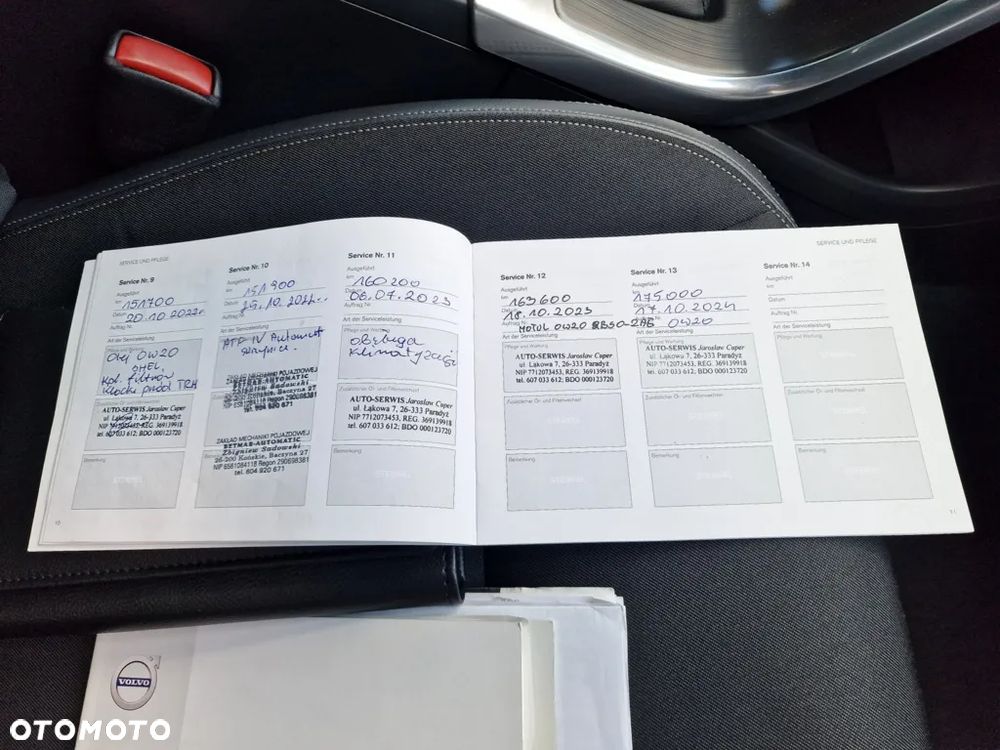 SERVICE UND PFLEGE
Service Nr. 9
Ausgeführt
km 151700
Datum 20.10.2022r
Auftrag Nr.
Olej 0W20
SHEL.
Kpl. filtrów
Klocki przód TRW
AUTO-SERWIS Jarosław Cuper
ul. Łąkowa 7, 26-333 Paradyż
NIP 7712073453, REG. 369139918
tel. 607 033 612; BDO 000123720
Bemerkung
STEMPEL
10
Service Nr. 10
Ausgeführt
km 151900
Datum 25.10.2022r.
Auftrag Nr.
Art der Serviceleistung
ATF IV Automat
ZAKŁAD MECHANIKI POJAZDOWEJ
BZTMAR-AUTOMATIC
Zbigniew Sadowski
26-200 Końskie, Baczyna 27
tel. 604 920 671
ZAKŁAD MECHANIKI POJAZDOWEJ
BZTMAR-AUTOMATIC
Zbigniew Sadowski
26-200 Końskie, Baczyna 27
NIP 6581084118 Regon 290698381
tel. 604 920 671
Service Nr. 11
Ausgeführt
km 160200
Datum 06.07.2023
Auftrag Nr.
Art der Serviceleistung
Pflege und Wartung
obsługa
Klimatyzacji
Zusätzlicher Öl- und Filterwechsel
AUTO-SERWIS Jarosław Cuper
ul. Łąkowa 7, 26-333 Paradyż
NIP 7712073453, REG. 369139918
tel. 607 033 612; BDO 000123720
Bemerkung
STEMPEL
SERVICE UND PFLEGE
Service Nr. 12
Ausgeführt
km 163600
Datum 18.10.2023
Auftrag Nr.
MOTUL 0W20 RBS0-2AE
Art der Serviceleistung
Pflege und Wartung
AUTO-SERWIS Jarosław Cuper
ul. Łąkowa 7, 26-333 Paradyż
NIP 7712073453, REG. 369139918
tel. 607 033 612; BDO 000123720
Zusätzlicher Öl- und Filterwechsel
Bemerkung
STEMPEL
Service Nr. 13
Ausgeführt
km 175000
Datum 17.10.2024
Auftrag Nr. 0W20
Art der Serviceleistung
AUTO-SERWIS Jarosław Cuper
ul. Łąkowa 7, 26-333 Paradyż
NIP 7712073453, REG. 369139918
tel. 607 033 612; BDO 000123720
Zusätzlicher Öl- und Filterwechsel
Bemerkung
STEMPEL
Service Nr. 14
Ausgeführt
km
Datum
Auftrag Nr.
Art der Serviceleistung
Pflege und Wartung
STEMPEL
Zusätzlicher Öl- und Filterwechsel
STEMPEL
Bemerkung
STEMPEL
11
VOLVO
OTOMOTO